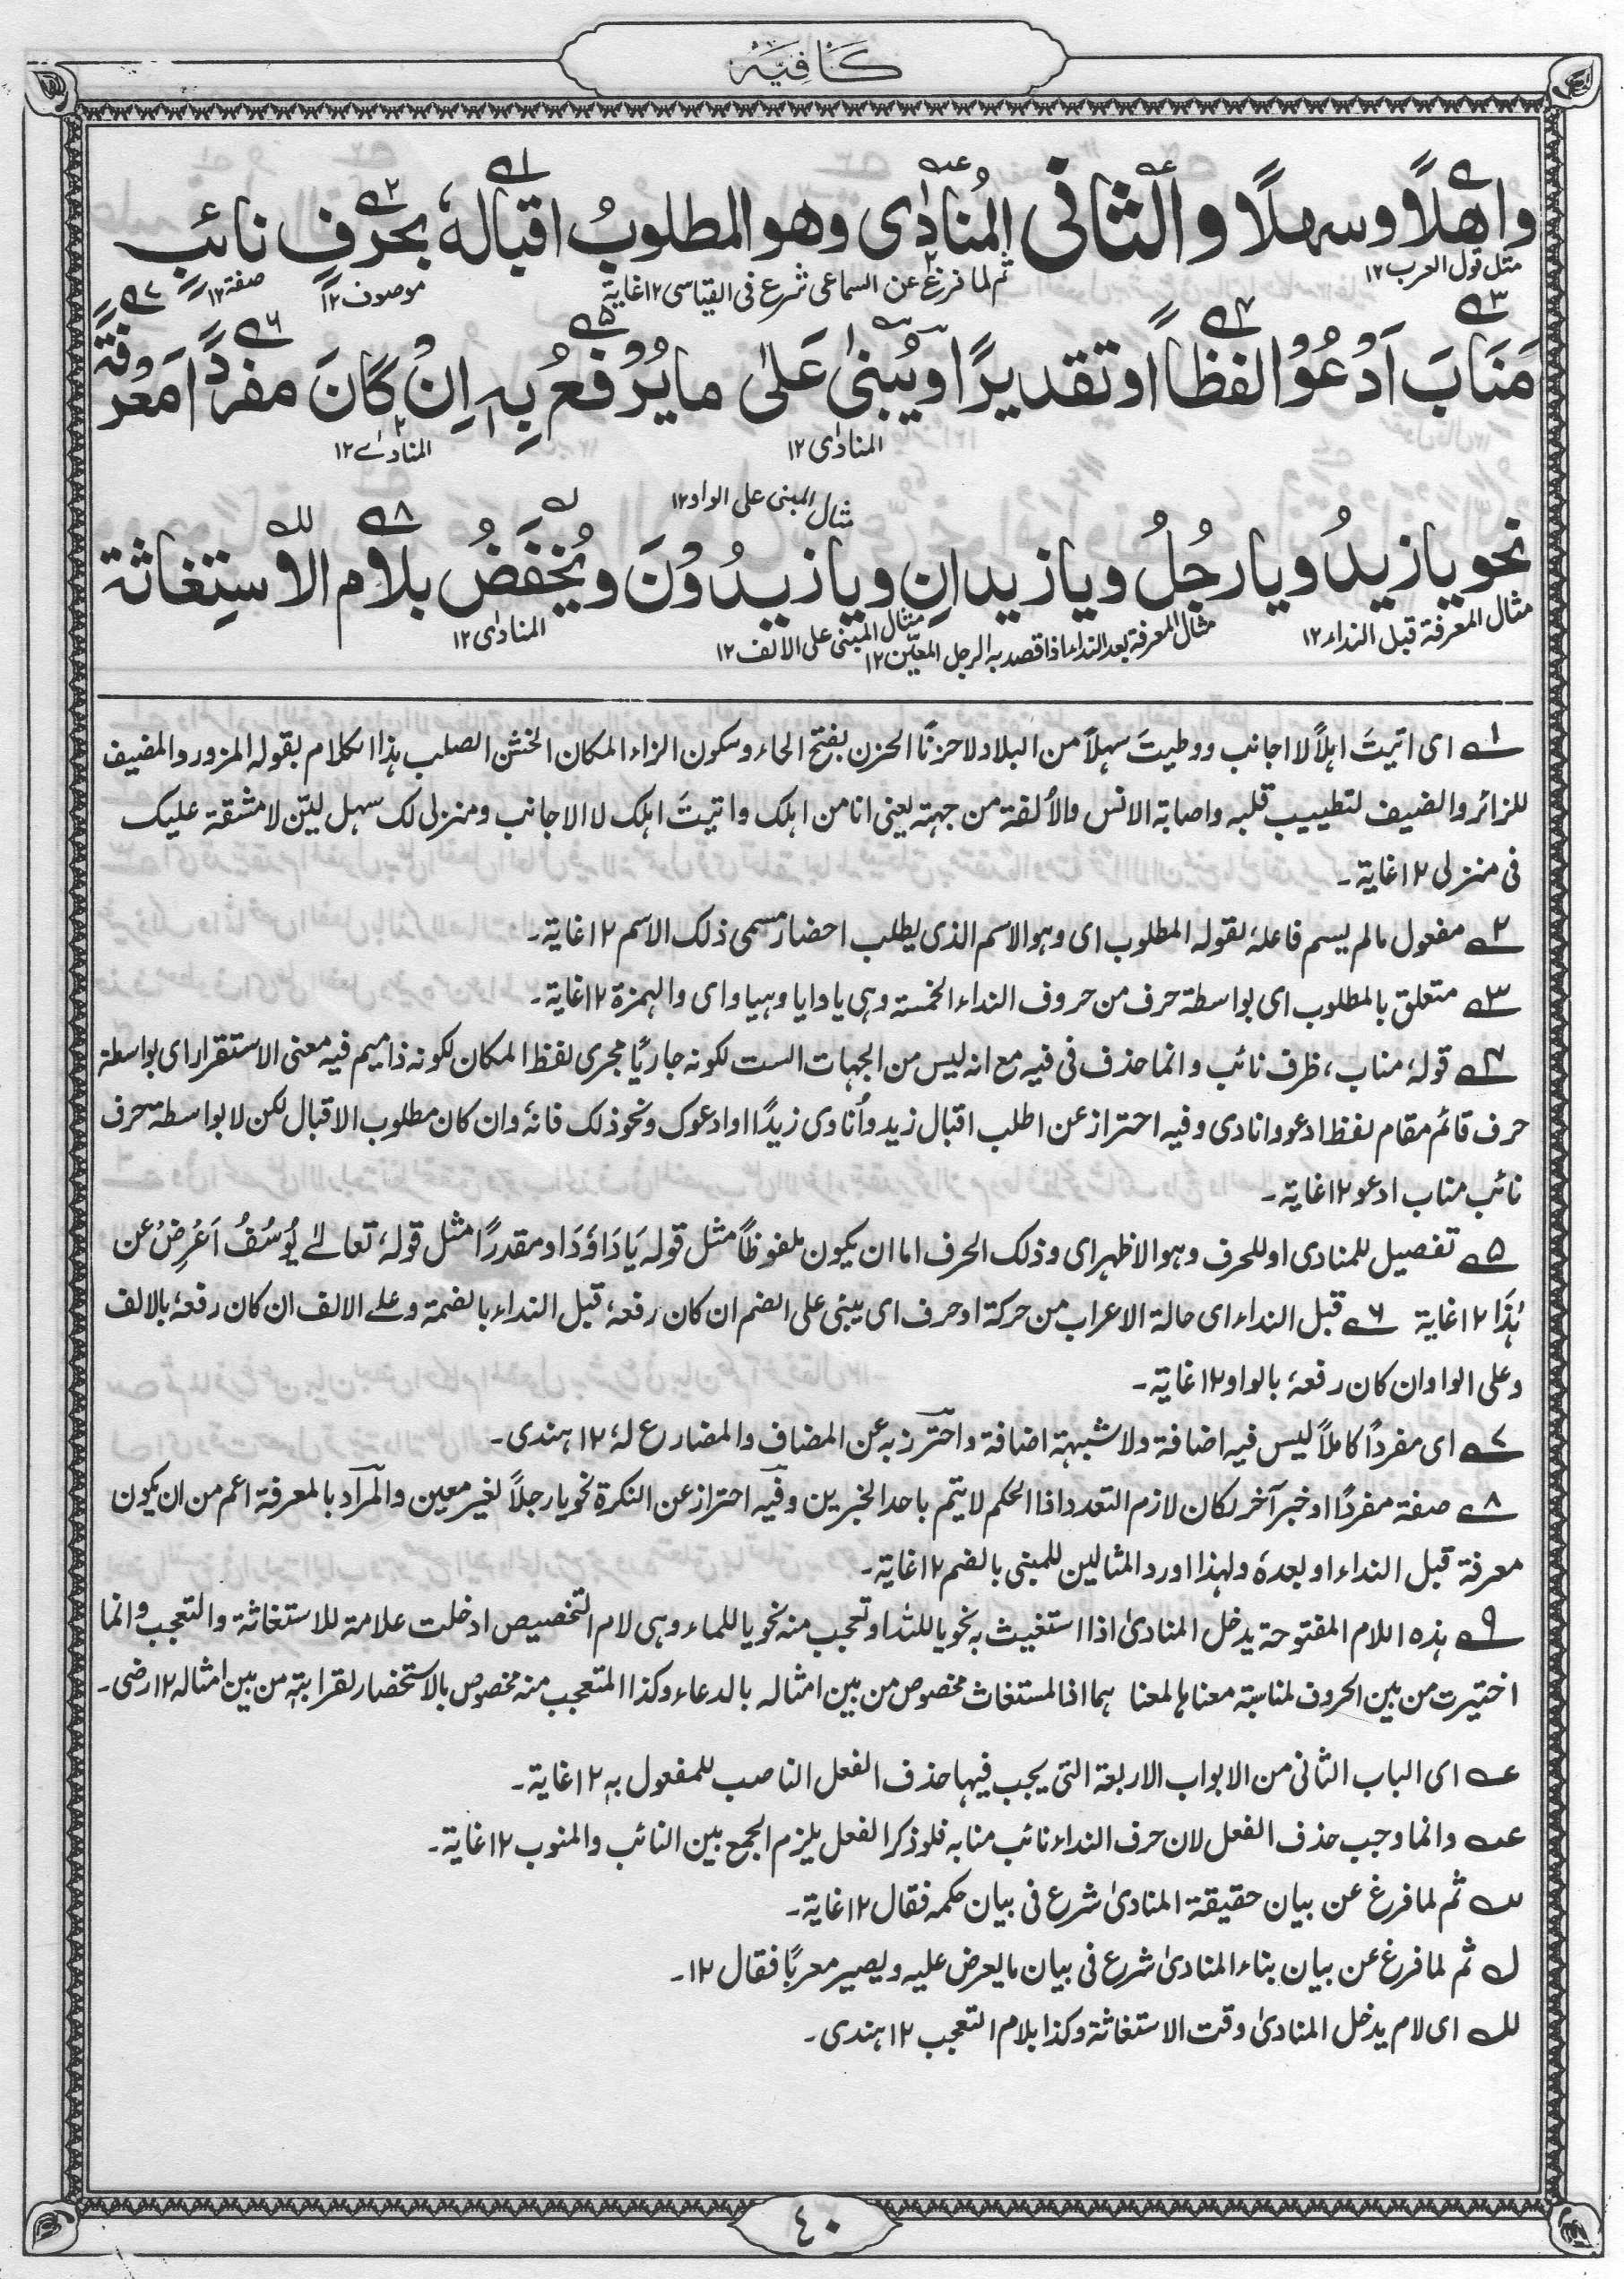 كَافِيَه
واَهلاً وسهلاً والثانى المُنادٰى وهو المطلوبُ اقبالهٗ بحرفٍ نائبٍ
مثل قول العرب١٢
ثم لما فرغ عن السماعى شرع فى القياسى ١٢غاية
موصوف١٢
صفة١٢
مَنَابَ اَدْعُوْ لفظاً او تقديرًا ويُبنٰى عَلىٰ ما يُرْفعُ بِهٖ اِنْ كَانَ مفردًا مَعْرفةً
المنادٰى١٢
المنادٰے١٢
مثال المبنى على الواو١٢
نحو يا زيدُ ويا رجُلُ ويا زيدانِ ويا زيدُوْنَ ويُخفَضُ بلامِ الاستِغاثة
مثال المعرفة قبل النداء١٢
مثال المعرفة بعد النداء اذا قصد به الرجل المعيّن١٢
مثال المبنى على الالف١٢
المنادٰى١٢
١ اى اتيتَ اہلاً لا اجانب ووطيتَ سہلاً من البلاد لا حزنًا الحزن بفتح الحاء وسكون الزاء المكان الخشن الصلب ہذا الكلام بقوله المزور والمضيف
للزائر والضيف لتطييب قلبه واصابة الانس والأُلفة من جہتہ يعنى انا من اہلک واتيتَ اہلک لا الاجانب ومنزلى لک سہل ليّن لا مشقة عليک
فى منزلى ١٢غاية۔
٢ مفعول مالم يسم فاعلہٗ لقوله المطلوب اى وہو الاسم الذى يطلب احضار مسمى ذلک الاسم ١٢غاية۔
٣ متعلق بالمطلوب اى بواسطة حرف من حروف النداء الخمسة وہى يا وايا وہيا واى والہمزة ١٢غاية۔
٤ قولہٗ مناب، ظرف نائب وانما حذف فى فيه مع انه ليس من الجہات الست لكونه جاريًا مجرى لفظ المكان لكونه ذا ميم فيه معنى الاستقرار اى بواسطة
حرف قائم مقام لفظ ادعو وانادى وفيه احتراز عن اطلب اقبال زيد وأنادى زيدًا او ادعوک ونحو ذلک فانہٗ وان كان مطلوب الاقبال لكن لا بواسطة حرف
نائب مناب ادعو ١٢غاية۔
٥ تفصيل للمنادى او للحرف وہو الاظہر اى وذلک الحرف اما ان يكون ملفوظاً مثل قوله يَا دَاوٗدَ او مقدرًا مثل قولہٗ تعالےٰ يُوْسُفُ اَعْرِضْ عن
ہٰذَا ١٢غاية ٦ قبل النداء اى حالة الاعراب من حركة او حرف اى يبنى على الضم ان كان رفعہٗ قبل النداء بالضمة وعلے الالف ان كان رفعہٗ بالالف
وعلى الواو ان كان رفعہٗ بالواو ١٢غاية۔
٧ اى مفردًا كاملاً ليس فيه اضافة ولا شبہة اضافة واحترز به عن المضاف والمضارع لہٗ ١٢ہندى۔
٨ صفة مفردًا او خبر آخر لكان لازم التعدد اذا الحكم لا يتم باحد الخبرين وفيه احتراز عن النكرة نحو يا رجلاً لغير معين والمراد بالمعرفة اعم من ان يكون
معرفة قبل النداء او بعدہٗ ولہذا اورد المثالين للمبنى بالضم ١٢غاية۔
٩ ہذہ اللام المفتوحة يدخل المنادىٰ اذا استغيث به نحو يا للہ او تعجب منه نحو يا للماء وہى لام التخصيص ادخلت علامة للاستغاثة والتعجب وانما
اختيرت من بين الحروف لمناسبة معناہا لمعنا ہما اذا لمستغاث مخصوص من بين امثاله بالدعاء وكذا المتعجب منه مخصوص بالاستحضار لقرابته من بين امثاله ١٢رضى۔
عه اى الباب الثانى من الابواب الاربعة التى يجب فيہا حذف الفعل الناصب للمفعول به ١٢غاية۔
عه وانما وجب حذف الفعل لان حرف النداء نائب منابه فلو ذكر الفعل يلزم الجمع بين النائب والمنوب ١٢غاية۔
ثم لما فرغ عن بيان حقيقة المنادىٰ شرع فى بيان حكمه فقال ١٢غاية۔
ل ثم لما فرغ عن بيان بناء المنادىٰ شرع فى بيان ما يعرض عليه ويصير معربًا فقال ١٢۔
لل اى لام يدخل المنادىٰ وقت الاستغاثة وكذا بلام التعجب ١٢ہندى۔
٤٠